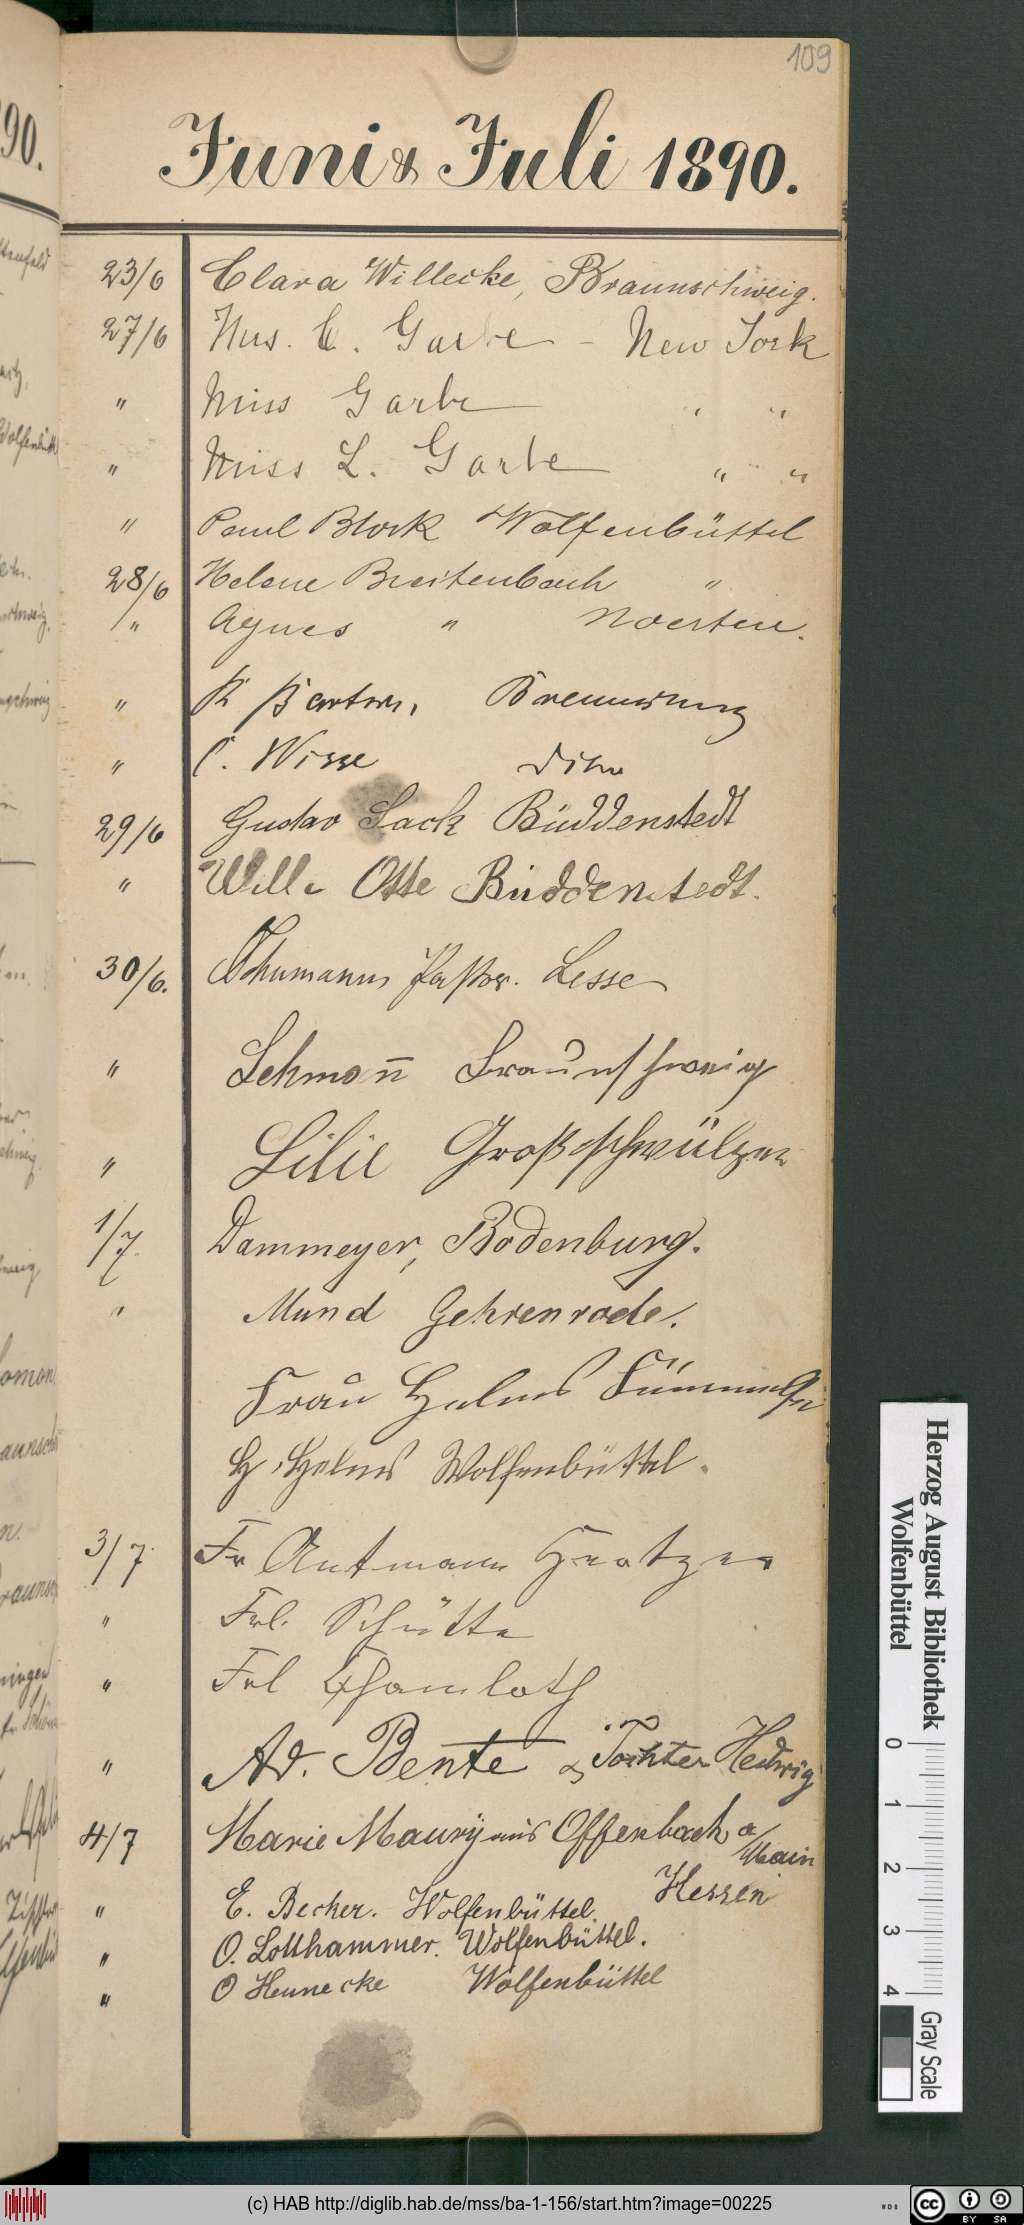 109
Juni & Juli 1890.
23/6 Clara Willecke, Braunschweig.
27/6 Mrs. C. Garbe - New York
" Miss Garbe " "
" Miss L. Garbe " "
" Paul Block Wolfenbüttel
28/6 Helene Breitenbach "
" Agnes " Noerten.
" Braunschweig
" C. Wisse dito
29/6 Gustav Sack Büddenstedt
" Willi Otte Büddenstedt.
30/6. Schumann Pastor. Lesse
" Lehmann Braunschweig
" Lilie Großschwülper
1/7. Dammeyer, Bodenburg.
" Mund Gehrenrode.
Frau Helms Fümmelse
H. Helms Wolfenbüttel.
3/7. Fr Amtmann
" Frl. Schütte
" Frl
" Ad. Bente & Tochter Hedwig
4/7 Marie Maury aus Offenbach a/Main
Hessen
" E. Becker. Wolfenbüttel.
" O. Lotthammer. Wolfenbüttel.
" O Hennecke Wolfenbüttel
Herzog August Bibliothek
Wolfenbüttel
0 1 2 3 4
Gray Scale
(c) HAB http://diglib.hab.de/mss/ba-1-156/start.htm?image=00225
WDB
cc BY SA